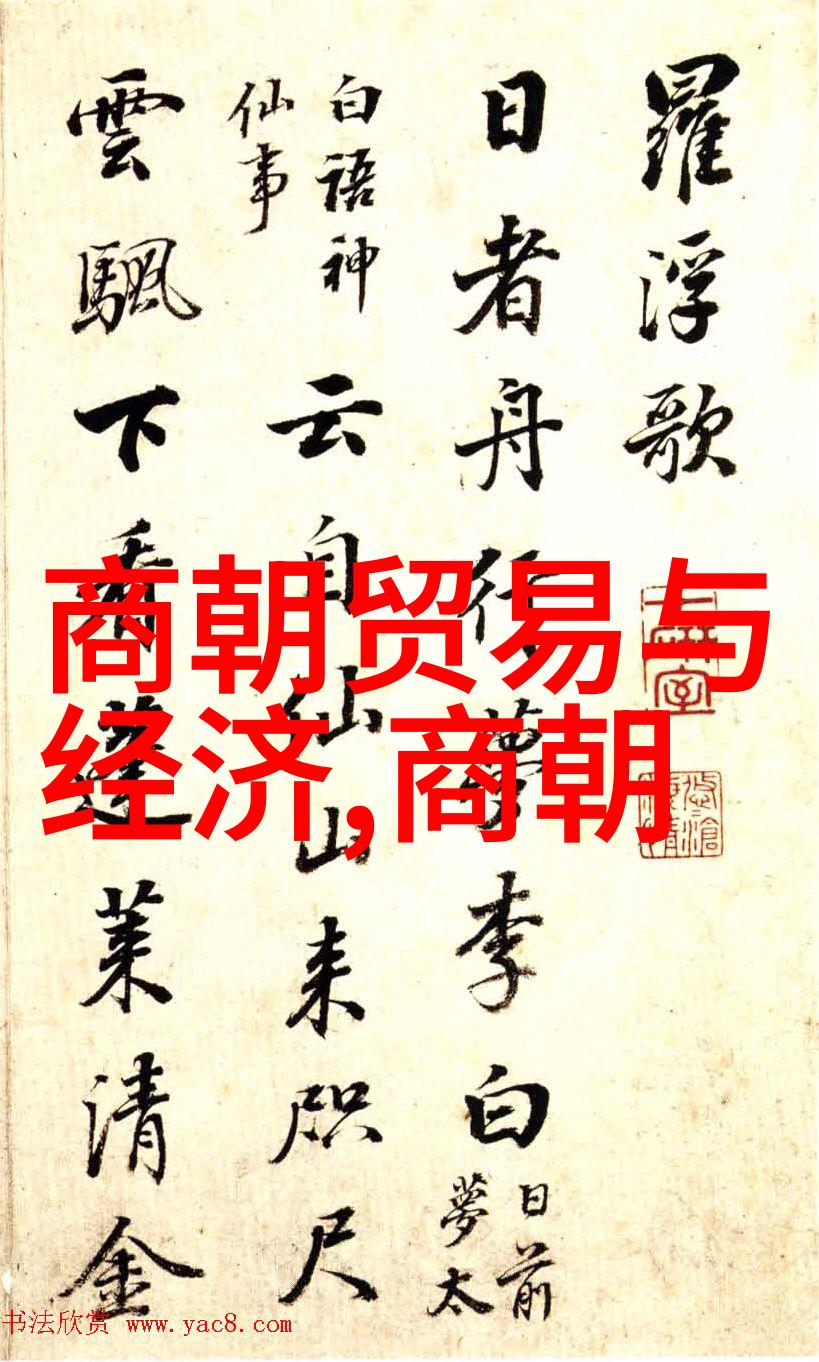 羅浮歌
日者舟行夢李白
日前
夢太
白語神
仙事
云自仙山来咫尺
雲颿下看蓬莱清金
商朝贸易与
经济,商朝
书法欣赏 www.yac8.com